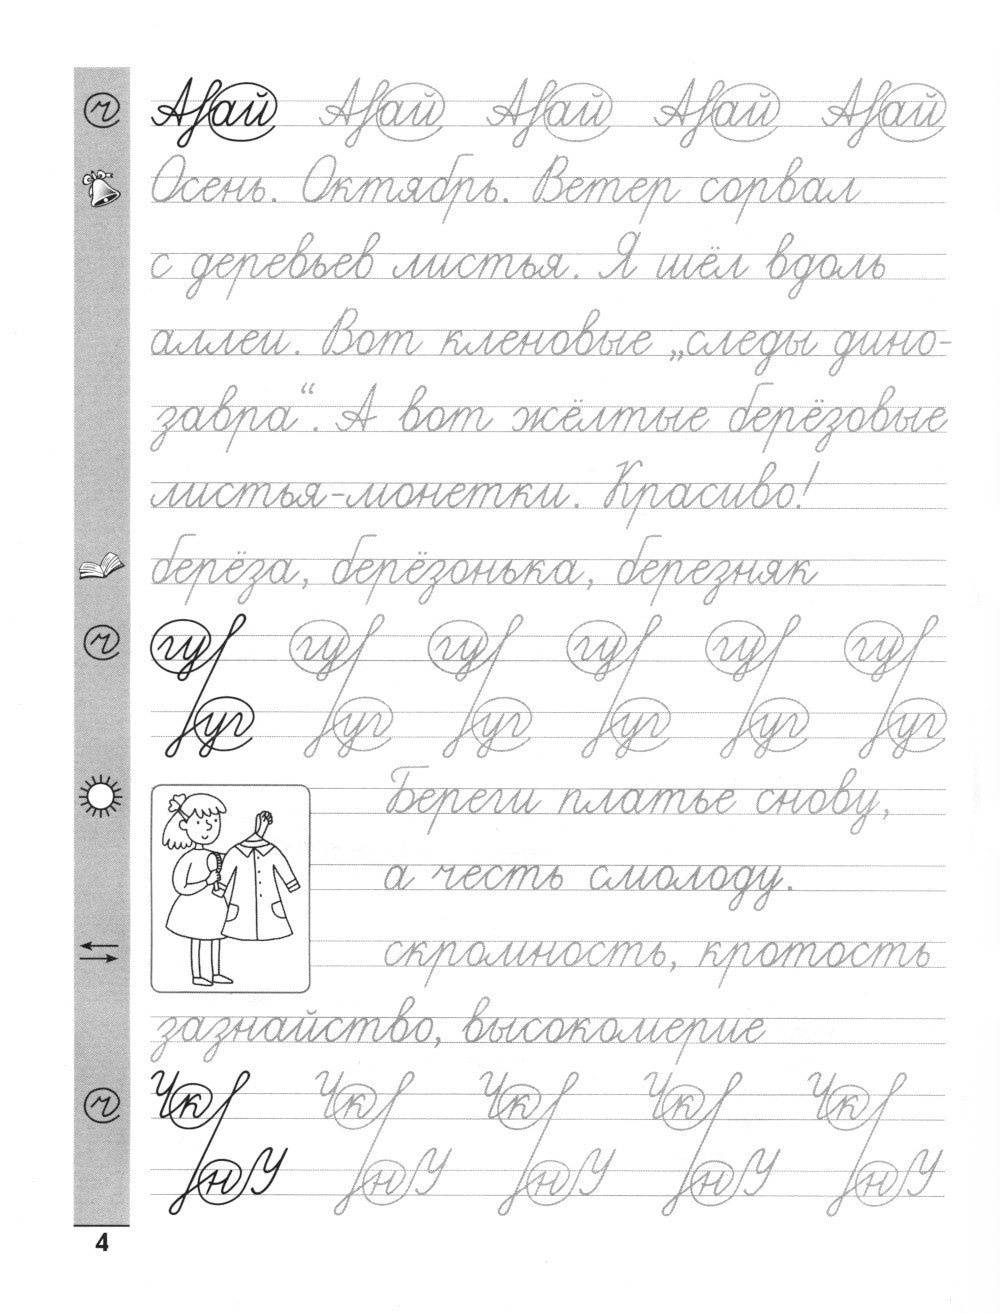 ч Ай Ай Ай Ай Ай
Осень. Октябрь. Ветер сорвал
с деревьев листья. Я шёл вдоль
аллеи. Вот кленовые „следы дино-
завра“. А вот жёлтые берёзовые
листья-монетки. Красиво!
берёза, берёзонька, березняк
ч гу гу гу гу гу гу
уг уг уг уг уг уг
Береги платье снову,
а честь смолоду.
скромность, кротость
зазнайство, высокомерие
ч Чк Чк Чк Чк Чк
нУ нУ нУ нУ нУ
4